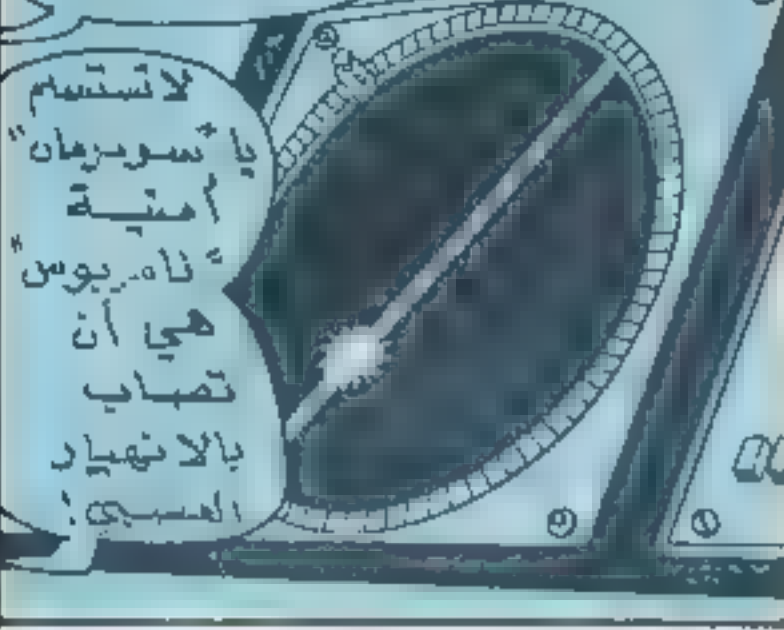 لا تستسلم
يا "سوبرمان"
أمنية
هي أن
تصاب
بالانهيار
العصبي!